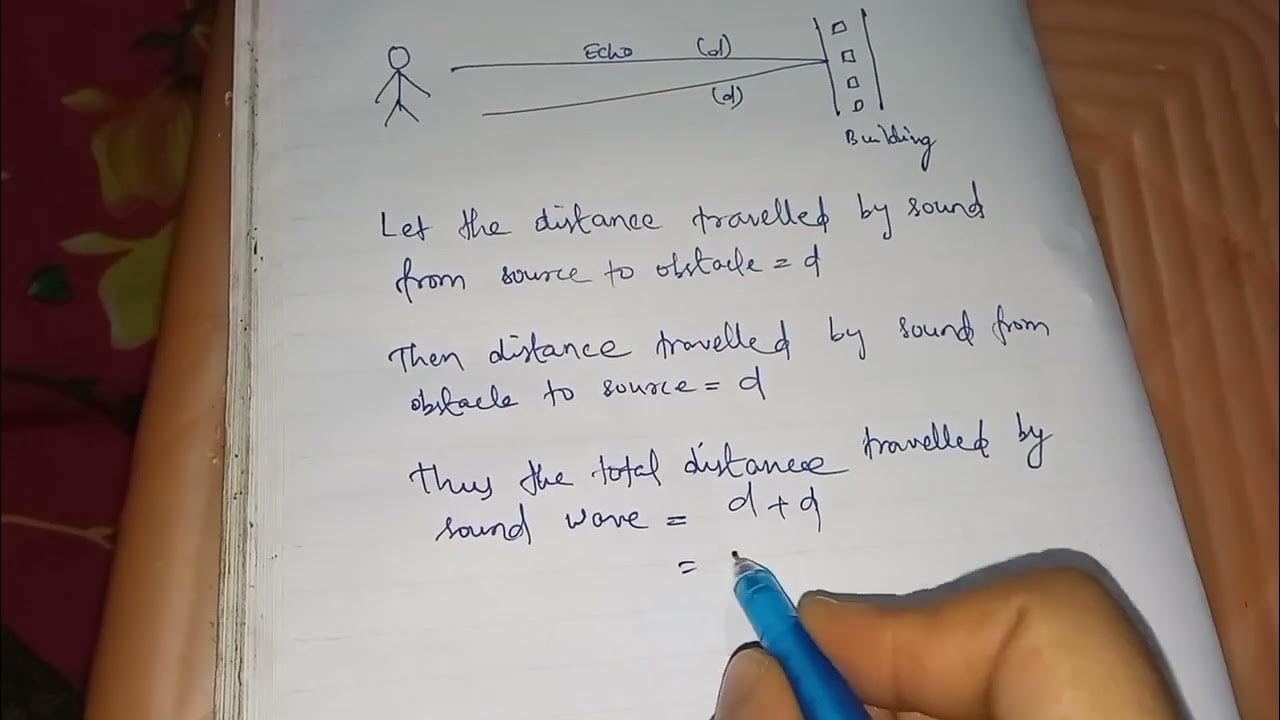 Echo (d)
(d)
Building
Let the distance travelled by sound
from source to obstacle = d
Then distance travelled by sound from
obstacle to source = d
Thus the total distance travelled by
sound wave = d + d
=